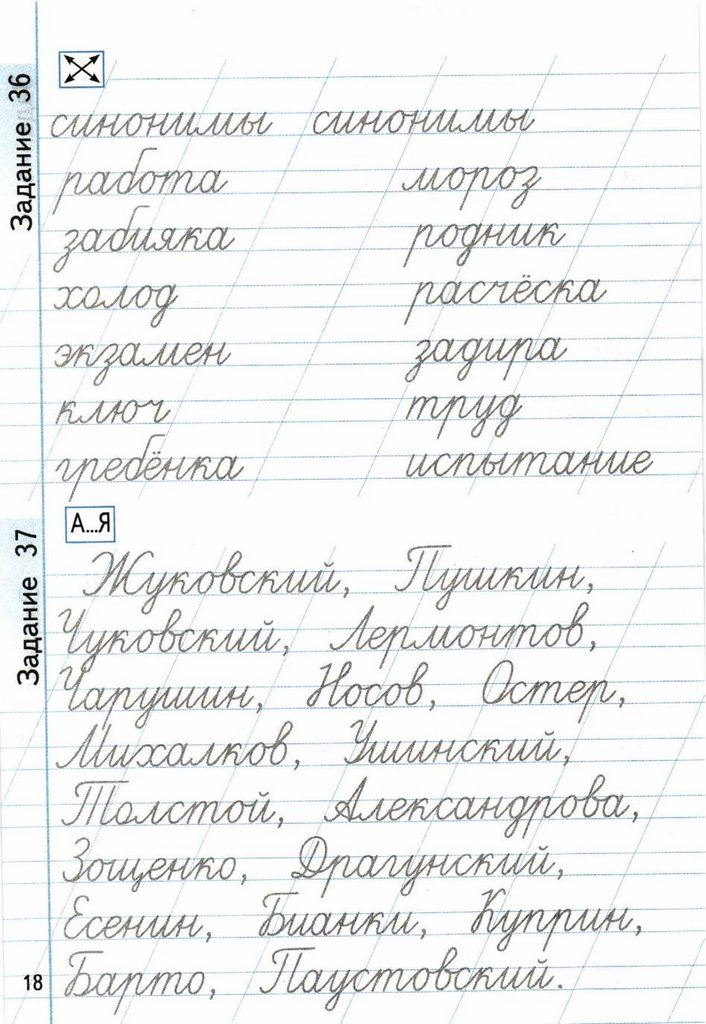 Задание 36
синонимы синонимы
работа мороз
забияка родник
холод расчёска
экзамен задира
ключ труд
гребёнка испытание
Задание 37
А...Я
Жуковский, Пушкин,
Чуковский, Лермонтов,
Чарушин, Носов, Остер,
Михалков, Ушинский,
Толстой, Александрова,
Зощенко, Драгунский,
Есенин, Бианки, Куприн,
Барто, Паустовский.
18